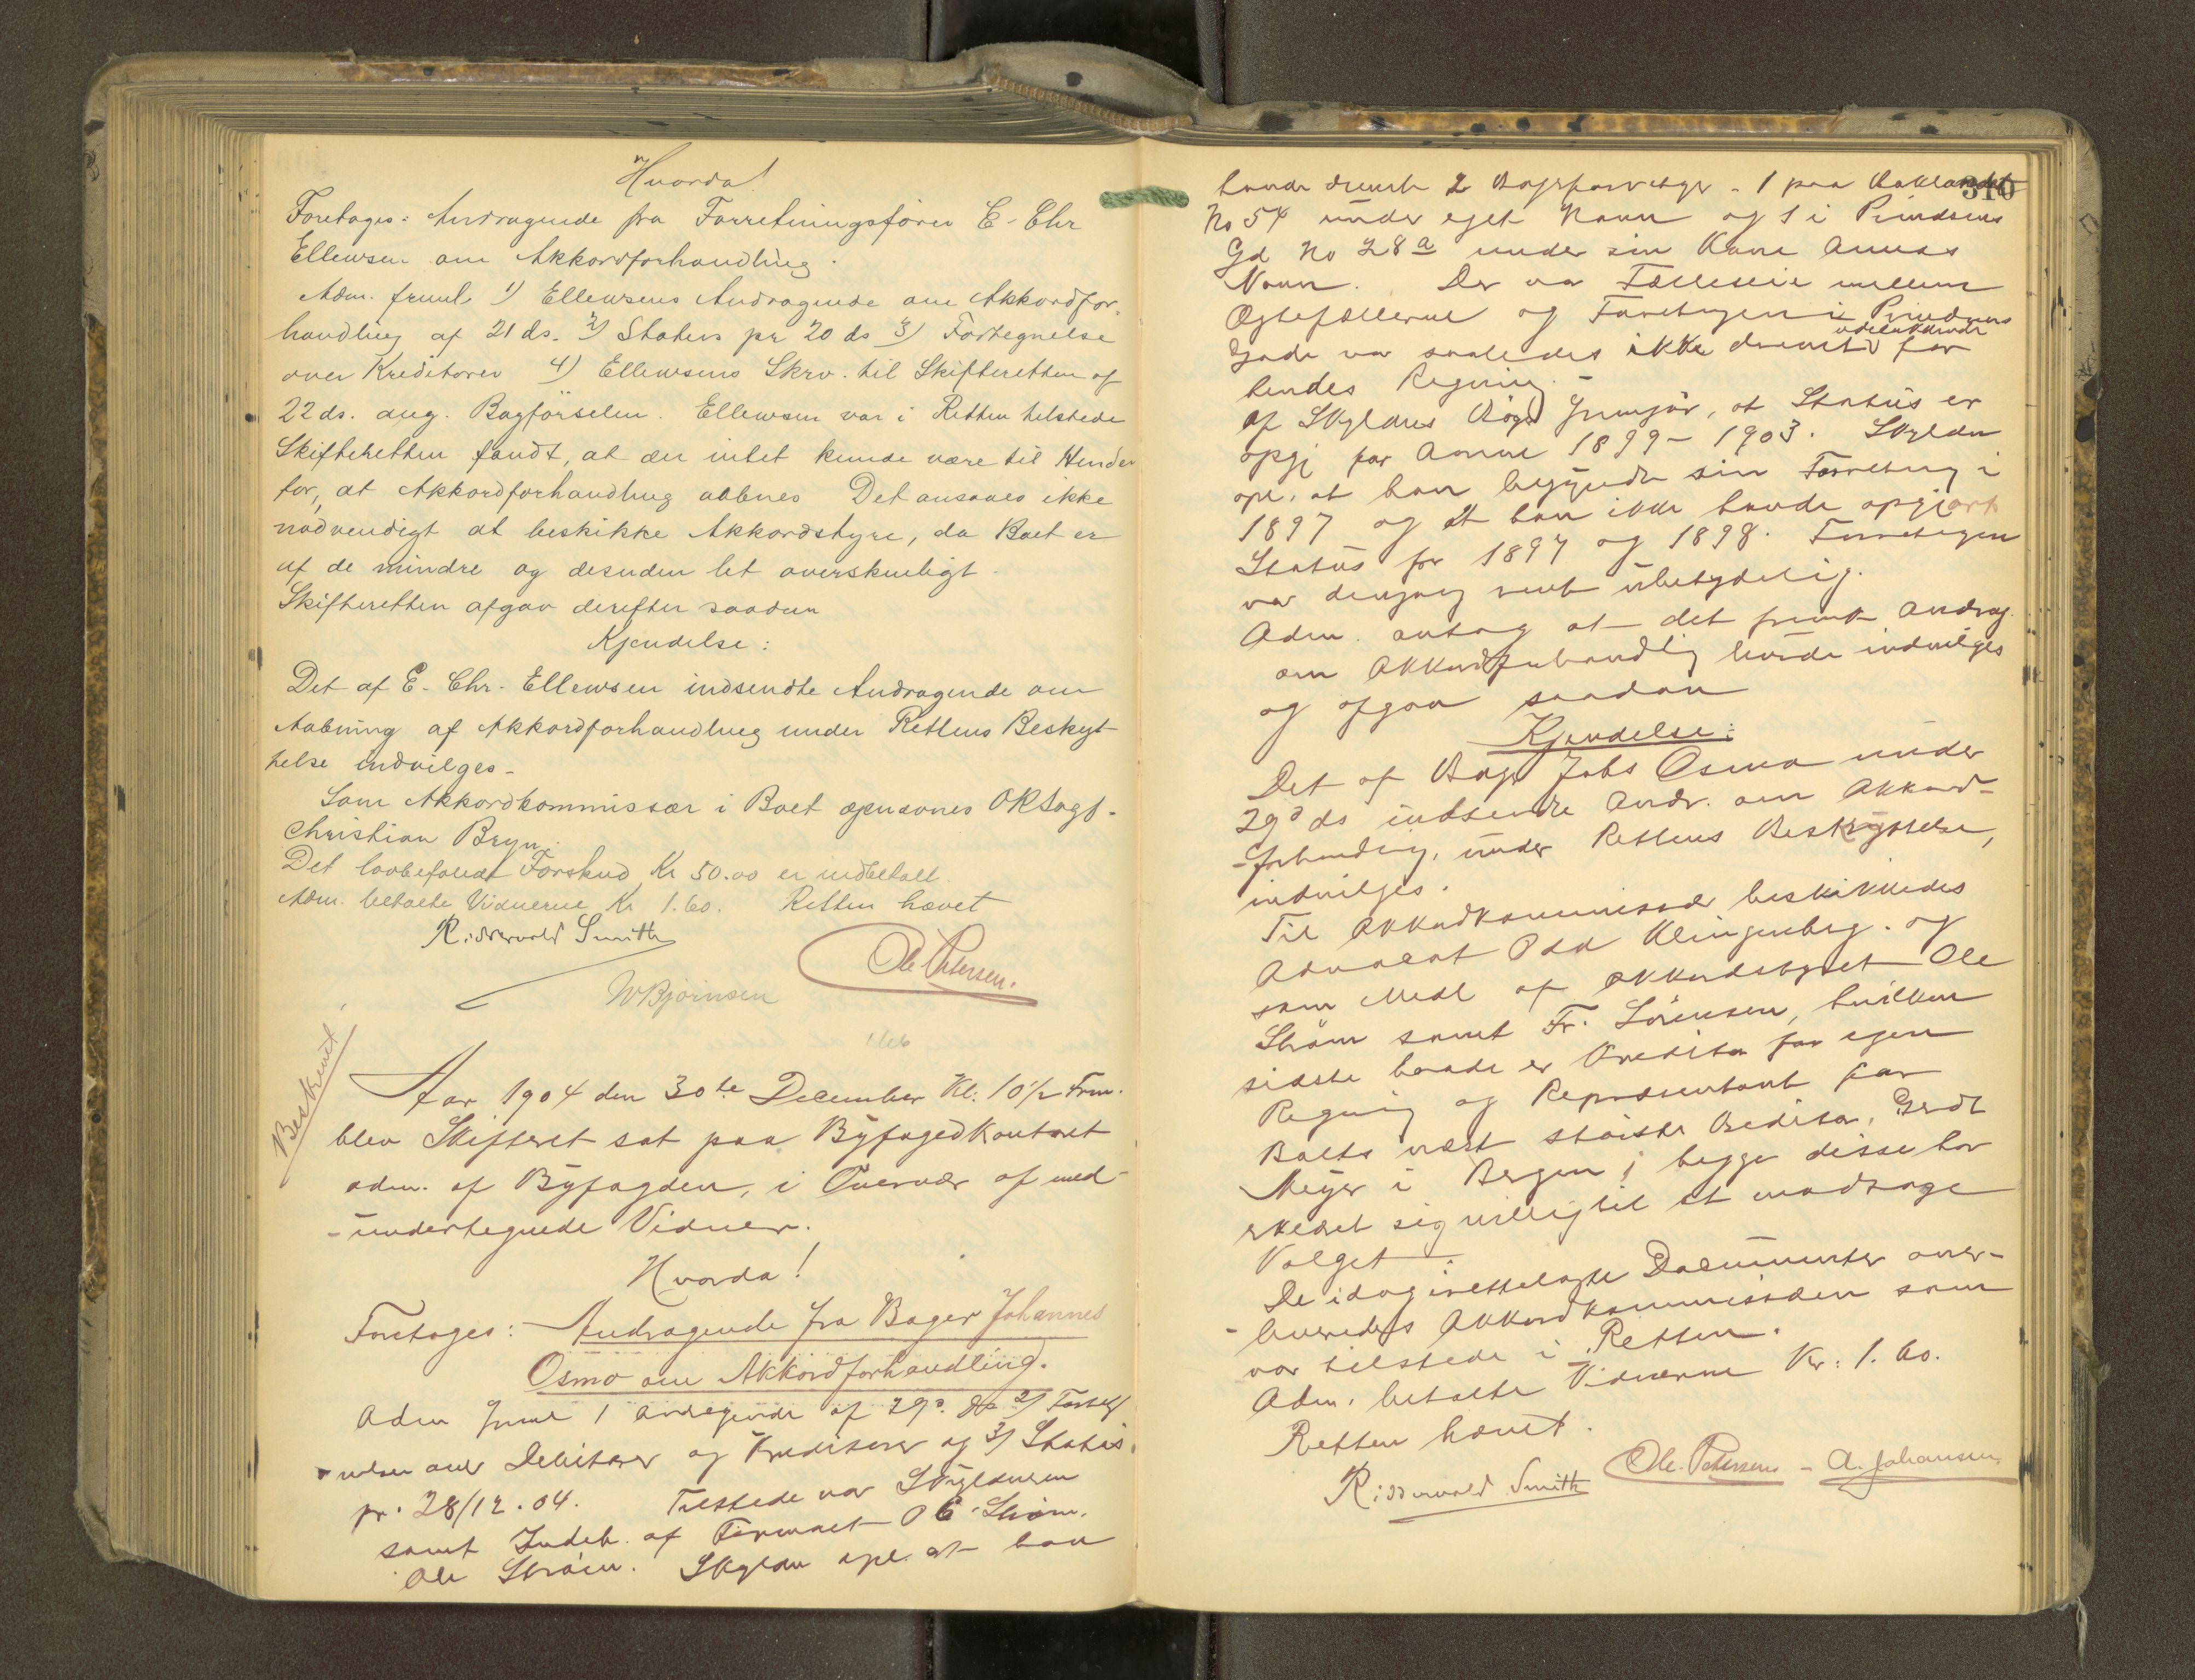 Hvorda!
Foretages: Andragende fra Forretningsfører E. Chr
Ellewsen om Akkordforhandling.
Adm. freml 1) Ellewsens Andragende om Akkordfor-
handling af 21 ds. 2) Status pr 20 ds 3) Fortegnelse
over Kreditorer 4) Ellewsens Skrv. til Skifteretten af
22 ds. ang. Bogførselen. Ellewsen var i Retten tilstede
Skifteretten fandt, at der intet kunde være til Hinder
for, at Akkordforhandling aabnes Det ansaaes ikke
nødvendigt at beskikke Akkordstyre, da Boet er
af de mindre og desuden let overskueligt.
Skifteretten afgav derefter saadan
Kjendelse:
Det af E. Chr. Ellewsen indsendte Andragende om
Aabning af Akkordforhandling under Rettens Beskyt-
telse indvilges.
Som Akkordkommissær i Boet opnævnes ORSagf.
Christian Bryn.
Det lovbefalede Forskud Kr 50.00 er indbetalt.
Adm. betalte Vidnerne Kr 1.60. Retten hævet
Ridderwold Smith
Ole Petersen.
W Bjørnsen
Beskrevet
Aar 1904 den 30te December Kl. 10½ Frm.
blev Skifteret sat paa Byfogedkontoret
adm. af Byfogden, i Overvær af med-
-undertegnede Vidner.
Hvorda!
Foretages: Andragende fra Bager Johannes
Osmo om Akkordforhandling.
Adm freml 1 Andragende af 29d. ds 2) Forteg
-nelse over Debitorer og Kreditorer og 3) Status
pr. 28/12.04. Tilstede var Skyldneren
samt Indeh. af Firmaet O C Strøm.
Ole Strøm. Skyldn opl. at han
310
havde drevet 2 Bagerforretngr - 1 paa Baklandet
No 54 under eget Navn og 1 i Prindsens
Gd No 28a under sin Kone Annas
Navn. Der var Fælleseie mellem
Ægtefællerne og Forretngen i Prindsens
Gade var saaledes ikke drevet udelukkende for
hendes Regning.
Af Skyldnes Bøger fremgår, at Status er
opgj for Aarene 1899-1903. Skyldn
opl. at han begyndte sin Forretning i
1897 og at han ikke havde opgjort
Status for 1897 og 1898. Forretngen
var dengang rent ubetydelig.
Adm. antog at det fremk Andrag.
om Akkordforhandlig burde indvilges
og afgav saadan
Kjendelse:
Det af Bager Johs Osmo under
29d ds indsendte Andr. om Akkord-
-forhandling, under Rettens Beskyttelse,
indvilges.
Til Akkordkommissær beskikkedes
Advokat Odd Klingenberg. og
som Medl af Akkordstyret Ole
Strøm samt Fr. Sørensen, hvilken
sidste baade er Kreditor for egen
Regning og Repræsentant for
Boets næst største Kreditor, Gerdt
Meyer i Bergen; begge disse har
erklæret sig villig til at modtage
Valget.
De idag irettelagte Documenter over-
-leveredes Akkordkommissæren som
var tilstede i Retten.
Adm. betalte Vidnerne Kr: 1.60.
Retten hævet.
Ridderwold Smith Ole Petersen - A. Johansen